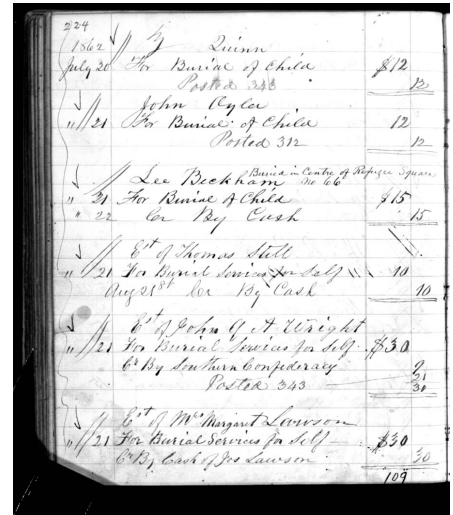 224
1862 // Quinn
July 20 For Burial of Child $12
Posted 343 12
John Ryler
" // 21 For Burial of Child 12
Posted 312 12
Lee Beckham Buried in Centre of Refugee Square No 66
" 21 For Burial of Child $15
" 22 Cr By Cash 15
Est of Thomas Still
" // 21 For Burial Services for Self 10
Aug 21st Cr By Cash 10
Est of John G A Wright
" // 21 For Burial Services for Self $30
Cr By Southern Confederacy 9
Posted 343 21
30
Est of Mrs Margaret Lawson
" // 21 For Burial Services for Self $30
Cr By Cash of Jos Lawson 30
109